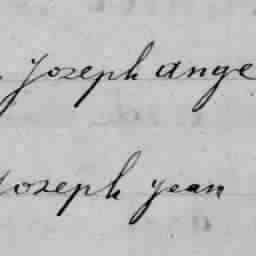 Joseph ange
Joseph jean